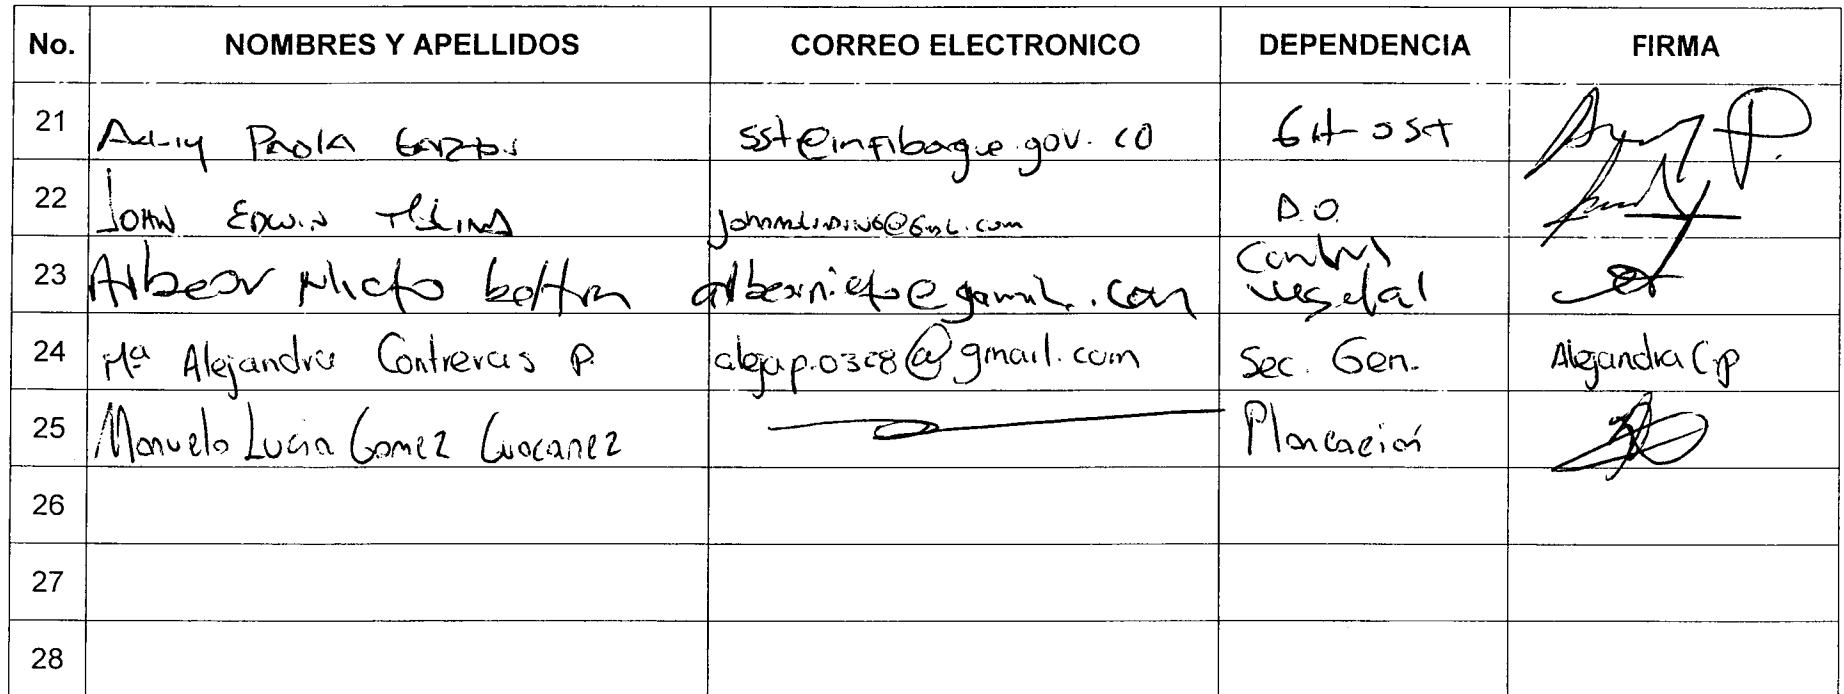 No. NOMBRES Y APELLIDOS CORREO ELECTRONICO DEPENDENCIA FIRMA
21 Paola sst@infibague.gov.co GH-SST
22 JOHN EDWIN D.O.
23 Albear Nieto albearnieto@gamil.com Control
vegetal
24 Mª Alejandra Contreras P. alejap.0308@gmail.com Sec. Gen. Alejandra C.p
25 Manuela Lucia Gomez Planeación
26
27
28